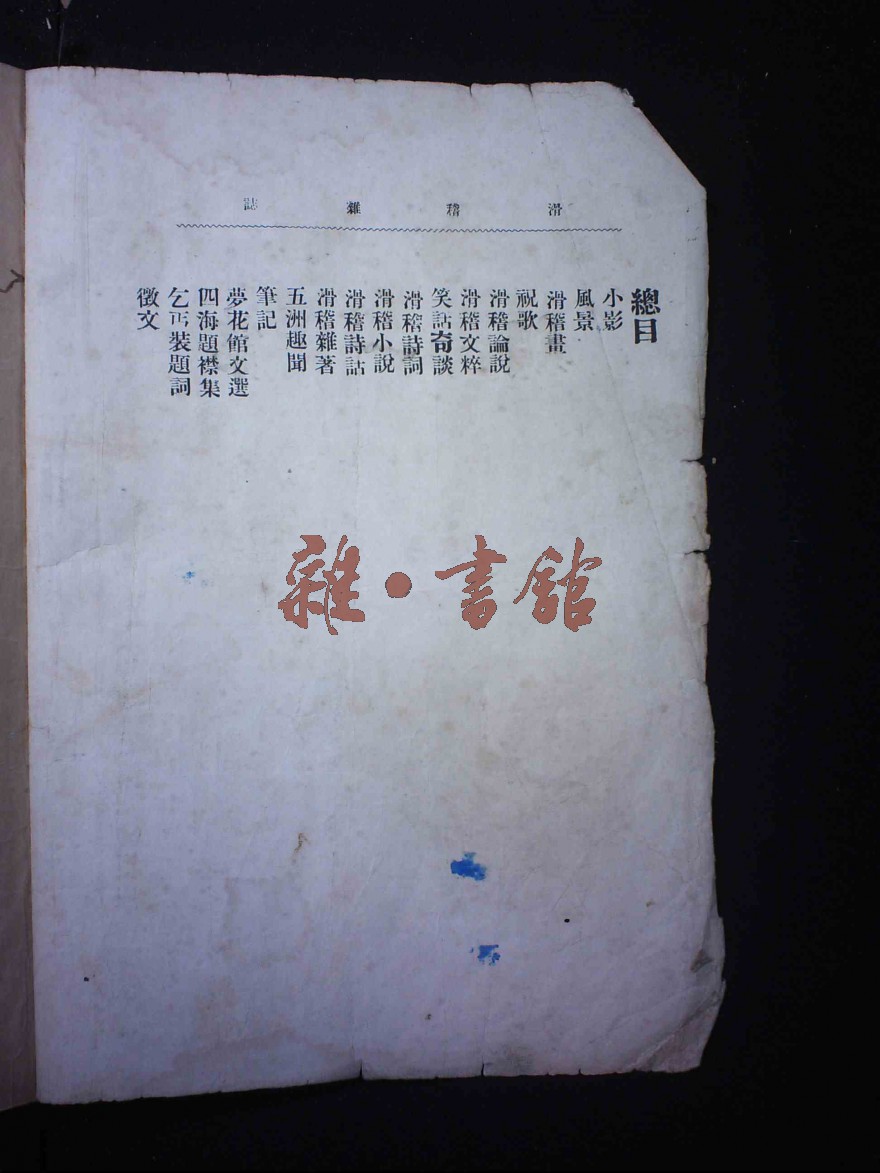 滑稽雜誌
總目
小影
風景
滑稽畫
祝歌
滑稽論說
滑稽文粹
笑話奇談
滑稽詩詞
滑稽小說
滑稽詩話
滑稽雜著
五洲趣聞
筆記
夢花館文選
四海題襟集
乞丐裝題詞
徵文
雜·書館